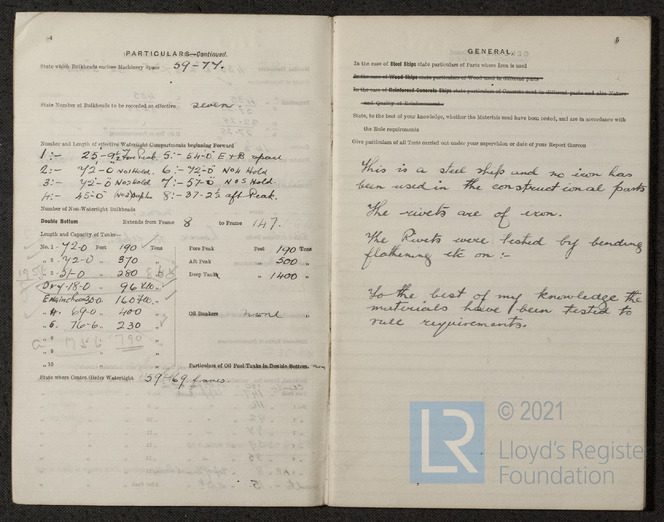 4
PARTICULARS—Continued.
State which Bulkheads enclose Machinery space 59-77.
State Number of Bulkheads to be recorded as effective seven.
Number and Length of effective Watertight Compartments beginning Forward
1:- 25-9½ Fore Peak. 5:- 54-0 E + B space
2:- 72-0 No 1 Hold. 6:- 72-0 No 4 Hold
3:- 72-0 No 2 Hold 7:- 57-0 No 5 Hold.
4:- 45-0 No 3 8:- 37-2½ aft Peak.
Number of Non-Watertight Bulkheads
Double Bottom Extends from Frame 8 to Frame 147.
Length and Capacity of Tanks—
No. 1 - 72-0 Feet 190 Tons Fore Peak Feet 190 Tons
" 2 - 72-0 " 370 " Aft Peak " 500 "
" 3 - 51-0 " 280 " Deep Tank " 1400 "
Dry-18-0 " 96
" 160
" 4. 69-0 " 400 " Oil Bunkers none "
" 5. 76-6 " 230 "
" 8
" 9
" 10 " Particulars of Oil Fuel Tanks in Double Bottom.
State where Centre Girder Watertight 59-69 frames.
5
GENERAL.
In the case of Steel Ships state particulars of Parts where Iron is used
In the case of Wood Ships state particulars of Wood used in different parts
In the case of Reinforced Concrete Ships state particulars of Cements used in different parts and also Nature
and Quality of Reinforcement.
State, to the best of your knowledge, whether the Materials used have been tested, and are in accordance with
the Rule requirements
Give particulars of all Tests carried out under your supervision or date of your Report thereon
This is a steel ship and no iron has
been used in the constructional parts
The rivets are of iron.
The Rivets were tested by bending
flattening etc on :-
To the best of my knowledge the
materials have been tested to
rule requirements.
LR
© 2021
Lloyd's Register
Foundation